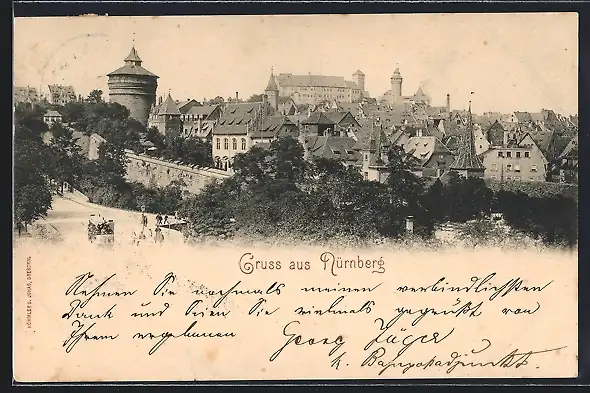 Gruss aus Nürnberg
Nehmen Sie nochmals meinen verbindlichsten
Dank und seien Sie vielmals gegrüßt von
Ihrem ergebenen
Georg Jäger
k. Bahnhof
RÖMMLER & JONAS, DRESDEN.